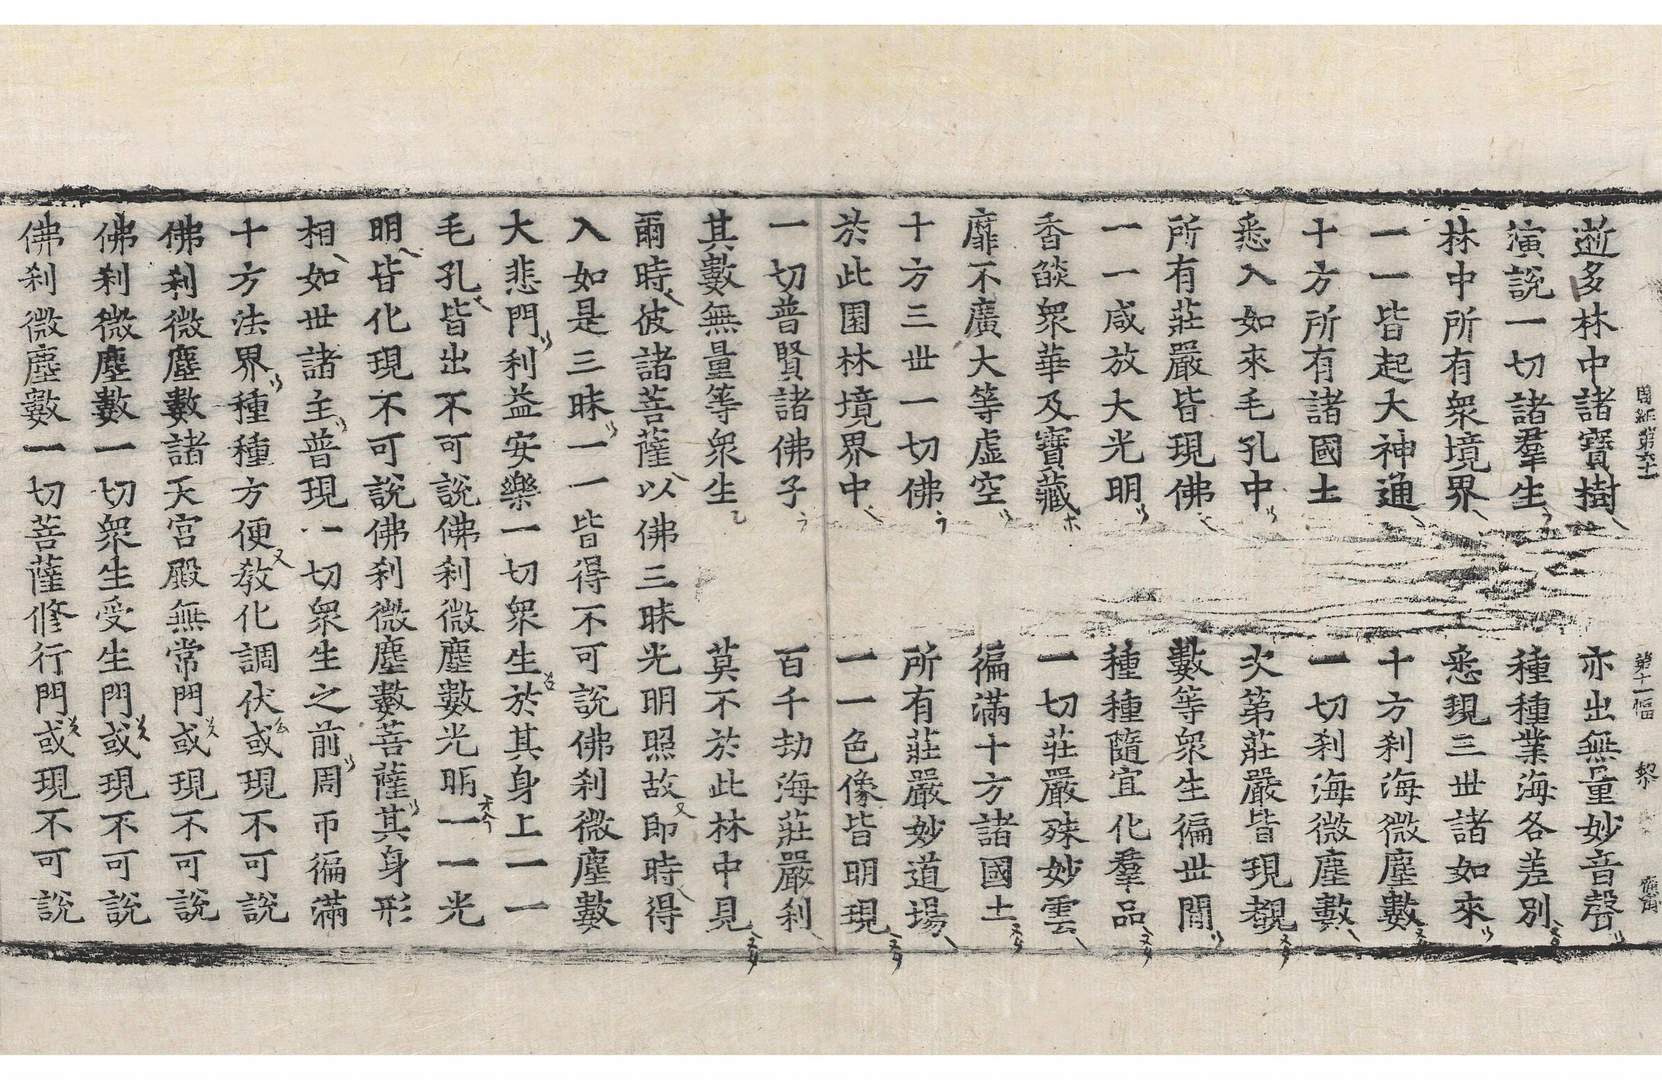 周經第六十一 第十一幅 黎
逝多林中諸寶樹 亦出無量妙音聲
演說一切諸羣生 種種業海各差別
林中所有衆境界 悉現三世諸如來
一一皆起大神通 十方刹海微塵數
十方所有諸國土 一切刹海微塵數
悉入如來毛孔中 次第莊嚴皆現覩
所有莊嚴皆現佛 數等衆生徧世間
一一咸放大光明 種種隨宜化羣品
香焰衆華及寶藏 一切莊嚴殊妙雲
靡不廣大等虛空 徧滿十方諸國土
十方三世一切佛 所有莊嚴妙道場
於此園林境界中 一一色像皆明現
一切普賢諸佛子 百千劫海莊嚴刹
其數無量等衆生 莫不於此林中見
爾時彼諸菩薩以佛三昧光明照故即時得
入如是三昧一一皆得不可說佛刹微塵數
大悲門利益安樂一切衆生於其身上一一
毛孔皆出不可說佛刹微塵數光明一一光
明皆化現不可說佛刹微塵數菩薩其身形
相如世諸主普現一切衆生之前周帀徧滿
十方法界種種方便教化調伏或現不可說
佛刹微塵數諸天宮殿無常門或現不可說
佛刹微塵數一切衆生受生門或現不可說
佛刹微塵數一切菩薩修行門或現不可說